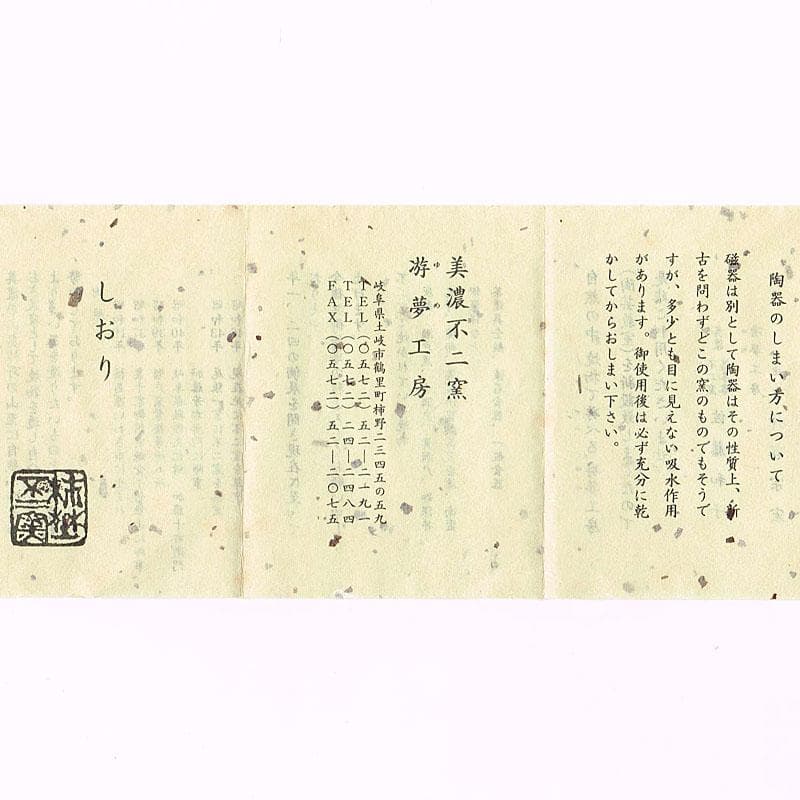 陶器のしまい方について
磁器は別として陶器はその性質上、新
古を問わずどこの窯のものでもそうで
すが、多少とも目に見えない吸水作用
があります。御使用後は必ず充分に乾
かしてからおしまい下さい。
美濃不二窯
游夢工房
ゆめ
岐阜県土岐市鶴里町柿野二三四五の五九
TEL(〇五七二)五二―二一九一
TEL(〇五七二)二四―二四八四
FAX(〇五七二)五二―二〇七五
しおり